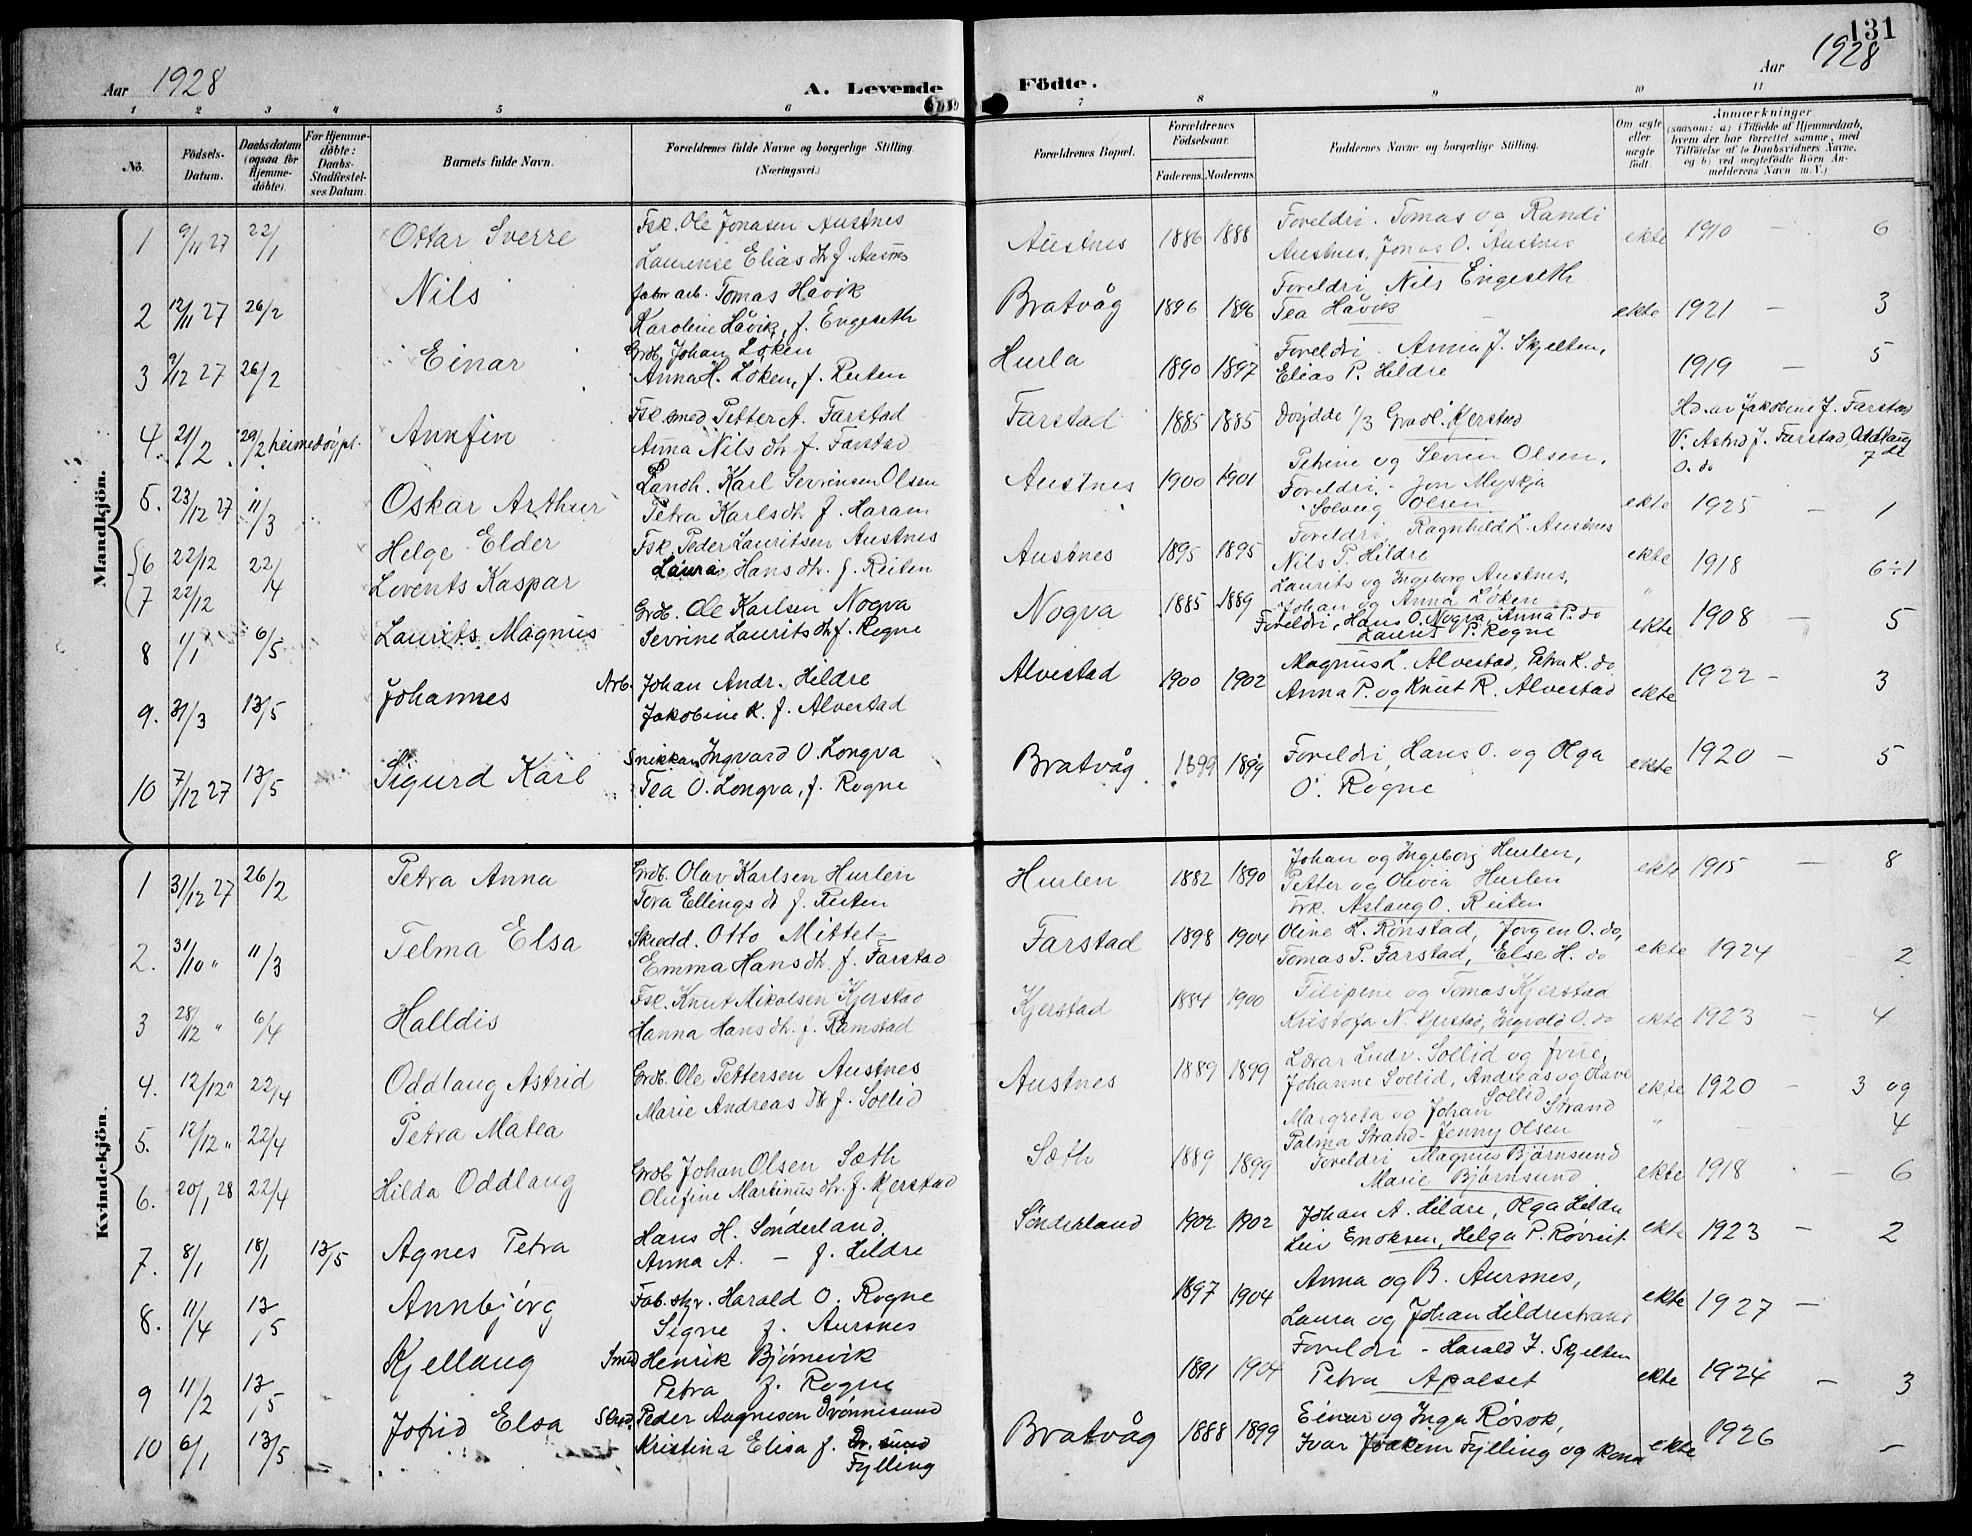 131
Aar 1928
A. Levende Födte.
Aar 1928
1 2 3 4 5 6 7 8 9 10 11
No.
Födsels-Datum.
Daabsdatum (ogsaa for Hjemme-döbte).
For Hjemme-döbte: Daabs-Stadfæstel-ses Datum.
Barnets fulde Navn.
Forældrenes fulde Navne og borgerlige Stilling. (Næringsvei.)
Forældrenes Bopæl.
Forældrenes Födselsaar.
Faderens. Moderens.
Faddernes Navne og borgerlige Stilling.
Om ægte eller uægte födt.
Anmærkninger
(saasom: a) i Tilfælde af Hjemmedaab, hvem der har forrettet samme, med Tilföielse af to Daabsvidners Navne, og b) ved uægtefödte Börn Anmelderens Navn m. V.)
Mandkjön.
1 9/11 27 22/1 Ottar Sverre Fsk. Ole Jonasen Austnes Austnes 1886 1888 Foreldri. Tomas og Randi ekte 1910 – 6
Laurense Elias dtr f. Austnes, Jonas O. Austnes
2 12/11 27 26/2 Nils fabr arb. Tomas Håvik Bratvåg 1896 1896 Foreldri Nils Engeseth ekte 1921 – 3
Karoline Håvik, f. Engeseth Tea Håvik
3 9/12 27 26/2 Einar Grdb. Johan Löken Hurla 1890 1897 Foreldri. Anna J. Skjelten, 1919 – 5
Anna H. Löken, f. Reiten Elias P. Hildre
4. 21/2 29/2 heimedöypt. Annfin Fsk. smed. Petter A. Farstad Farstad 1885 1885 Döydde 1/3 Gravl. Kjerstad Hd. av Jakobine J. Farstad
Anna Nils dtr f. Farstad V. Astrid J. Farstad, Oddlaug O. do 7 de
5. 23/12 27 11/3 Oskar Arthur Landh. Karl Sevrinsen Olsen Austnes 1900 1901 Petrine og Sevrin Olsen, ekte 1925 – 1
Petra Karlsdtr f. Haram Foreldri. Jon Myskja
Solvug Olsen
6 22/12 22/4 Helge Elder Fsk. Peder Lauritsen Austnes Austnes 1895 1895 Foreldri, Ragnhild L. Austnes ekte 1918 6÷1
Laura Hans dtr. f. Reiten Nils P. Hildre
7 22/12 Lorents Kaspar Laurits og Ingeborg Austnes, "
Johan og Anna Löken
8 1/1 6/5 Laurits Magnus Grdb. Ole Karlsen Nogva Nogva 1885 1889 Foreldri, Hans O. Nogva, Anna P. do ekte 1908 – 5
Sevrine Laurits dtr f. Rogne Laurits P. Rogne
9. 31/3 13/5 Johannes Arb. Johan Andr. Hildre Alvestad 1900 1902 Magnus L. Alvestad, Petra K. do ekte 1922 – 3
Jakobine K. f. Alvestad Anna P. og Knut R. Alvestad
10 7/12 27 13/5 Sigurd Karl Snikkar Ingvard O. Longva Bratvåg 1899 1899 Foreldri, Hans O. og Olga ekte 1920 – 5
Tea O. Longva, f. Rogne O. Rogne
Kvindekjön.
1 31/12 27 26/2 Petra Anna Grdb. Olav Karlsen Hurlen Hurlen 1882 1890 Johan og Ingeborg Hurlen, ekte 1915 – 8
Tora Ellings dt f. Reiten Petter og Olivia Hurlen
Frk. Aslaug O. Reiten
2. 31/10 " 11/3 Telma Elsa Skredd. Otto Mittet Farstad 1898 1904 Oline H. Rönstad, Jörgen O. do, ekte 1924 2
Emma Hans dtr. f. Farstad Tomas P. Farstad, Else H. do
3 28/12 " 6/4 Halldis Fsk. Knut Mikalsen Kjerstad Kjerstad 1884 1900 Filipene og Tomas Kjerstad ekte 1923 – 4
Hanna Hans dtr. f. Ramstad Kristofa N. Kjerstad, Ingvald O. do
4. 12/12 " 22/4 Oddlaug Astrid Grdb. Ole Pettersen Austnes Austnes 1889 1899 Lærar Ludv. Sollid og frue, ekte 1920 – 3 og
Marie Andreas dtr f. Sollid Johanne Sollid, Andreas og Olave Sollid
5. 12/12 " 22/4 Petra Matea Margreta og Johan Strand " 4
Palma Strand - Jenny Olsen
6. 20/1 28 22/4 Hilda Oddlaug Grdb Johan Olsen Sæth Sæth 1889 1899 Foreldri Magnus Björnsund ekte 1918 – 6
Olufine Martinus dtr. f. Kjerstad Marie Björnsund
7. 8/1 18/1 13/5 Agnes Petra Hans H. Sönderland, Sönderland 1902 1902 Johan A. Hildre, Olga Hildre ekte 1923 – 2
Anna A. – f. Hildre Leiv Enoksen, Helga P. Rövreit
8. 11/4 13/5 Annbjörg Fab. skr. Harald O. Rogne 1897 1904 Anna og B. Aursnes, ekte 1927 –
Signe f. Aursnes Laura og Johan Hildrestrand
9 11/2 13/5 Kjellaug Smed Henrik Björnevik 1891 1904 Foreldri - Harald J. Skjelten ekte 1924 – 3
Petra f. Rogne Petra Apalset
10 6/1 13/5 Jofrid Elsa Peder Aagneson Drönnesund Bratvåg 1888 1899 Einar og Inga Rösok, ekte 1926 –
Kristina Elisa f. Dr. sund Ivar Joakim Fylling og kona
Fylling